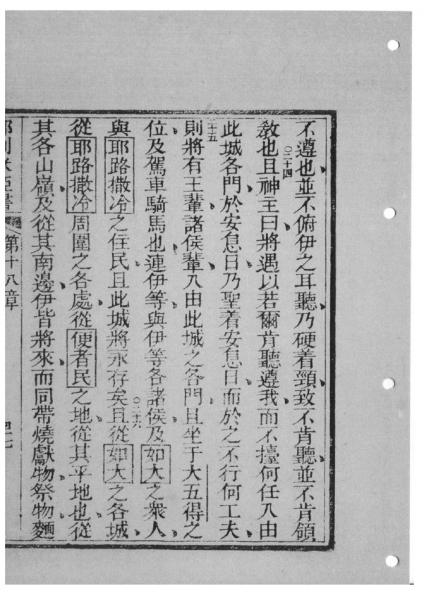 不遵也並不俯伊之耳聽乃硬着頸致不肯聽並不肯領
教也○二十四且神主曰將遇以若爾肯聽遵我而不擡何任入由
此城各門於安息日乃聖着安息日而於之不行何工夫
○二十五則將有王輩諸侯輩入由此城之各門且坐于大五得之
位及駕車騎馬也連伊等與伊等各諸侯及如大之衆人
與耶路撒冷之住民且此城將永存矣○二十六且從如大之各城
從耶路撒冷周圍之各處從便者民之地從其平地也從
其各山嶺及從其南邊伊皆將來而同帶燒獻物祭物麵
第十八章